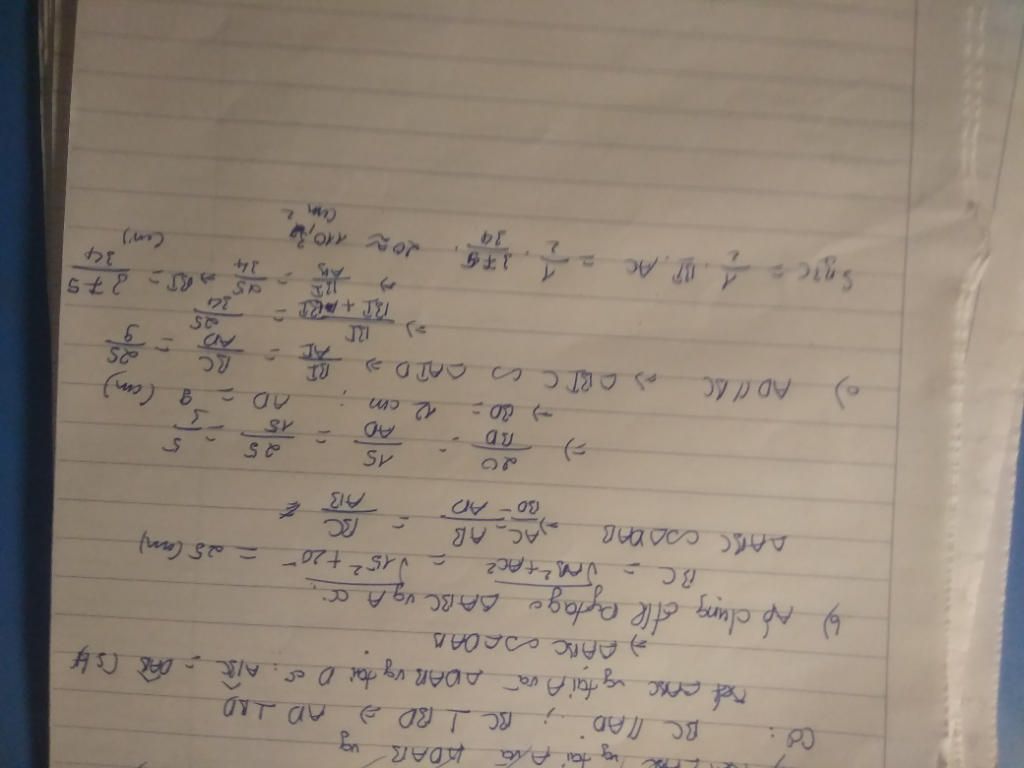 ΔABC vg tại A và ΔDAB vg
Có: BC // AD; BC ⊥ BD ⇒ AD ⊥ BD
Xét ΔABC vg tại A và ΔDAB vg tại D có: ABC = DAB (slt)
⇒ ΔABC ∽ ΔDAB
b) Áp dụng đlí Pytago ΔABC vg A có:
BC = √AB² + AC² = √15² + 20² = 25 (cm)
ΔABC ∽ ΔDAB ⇒ AC/BD = AB/AD = BC/AB
⇒ 20/BD = 15/AD = 25/15 = 5/3
⇒ BD = 12 cm; AD = 9 (cm)
c) AD // BC ⇒ ΔBIC ∽ ΔAID ⇒ BI/AI = BC/AD = 25/9
⇒ BI/BI + AI = 25/34
⇒ BI/AB = 25/34 ⇒ BI = 375/34 (cm)
S BIC = 1/2 . BI . AC = 1/2 . 375/34 . 20 ≈ 110,3 cm²